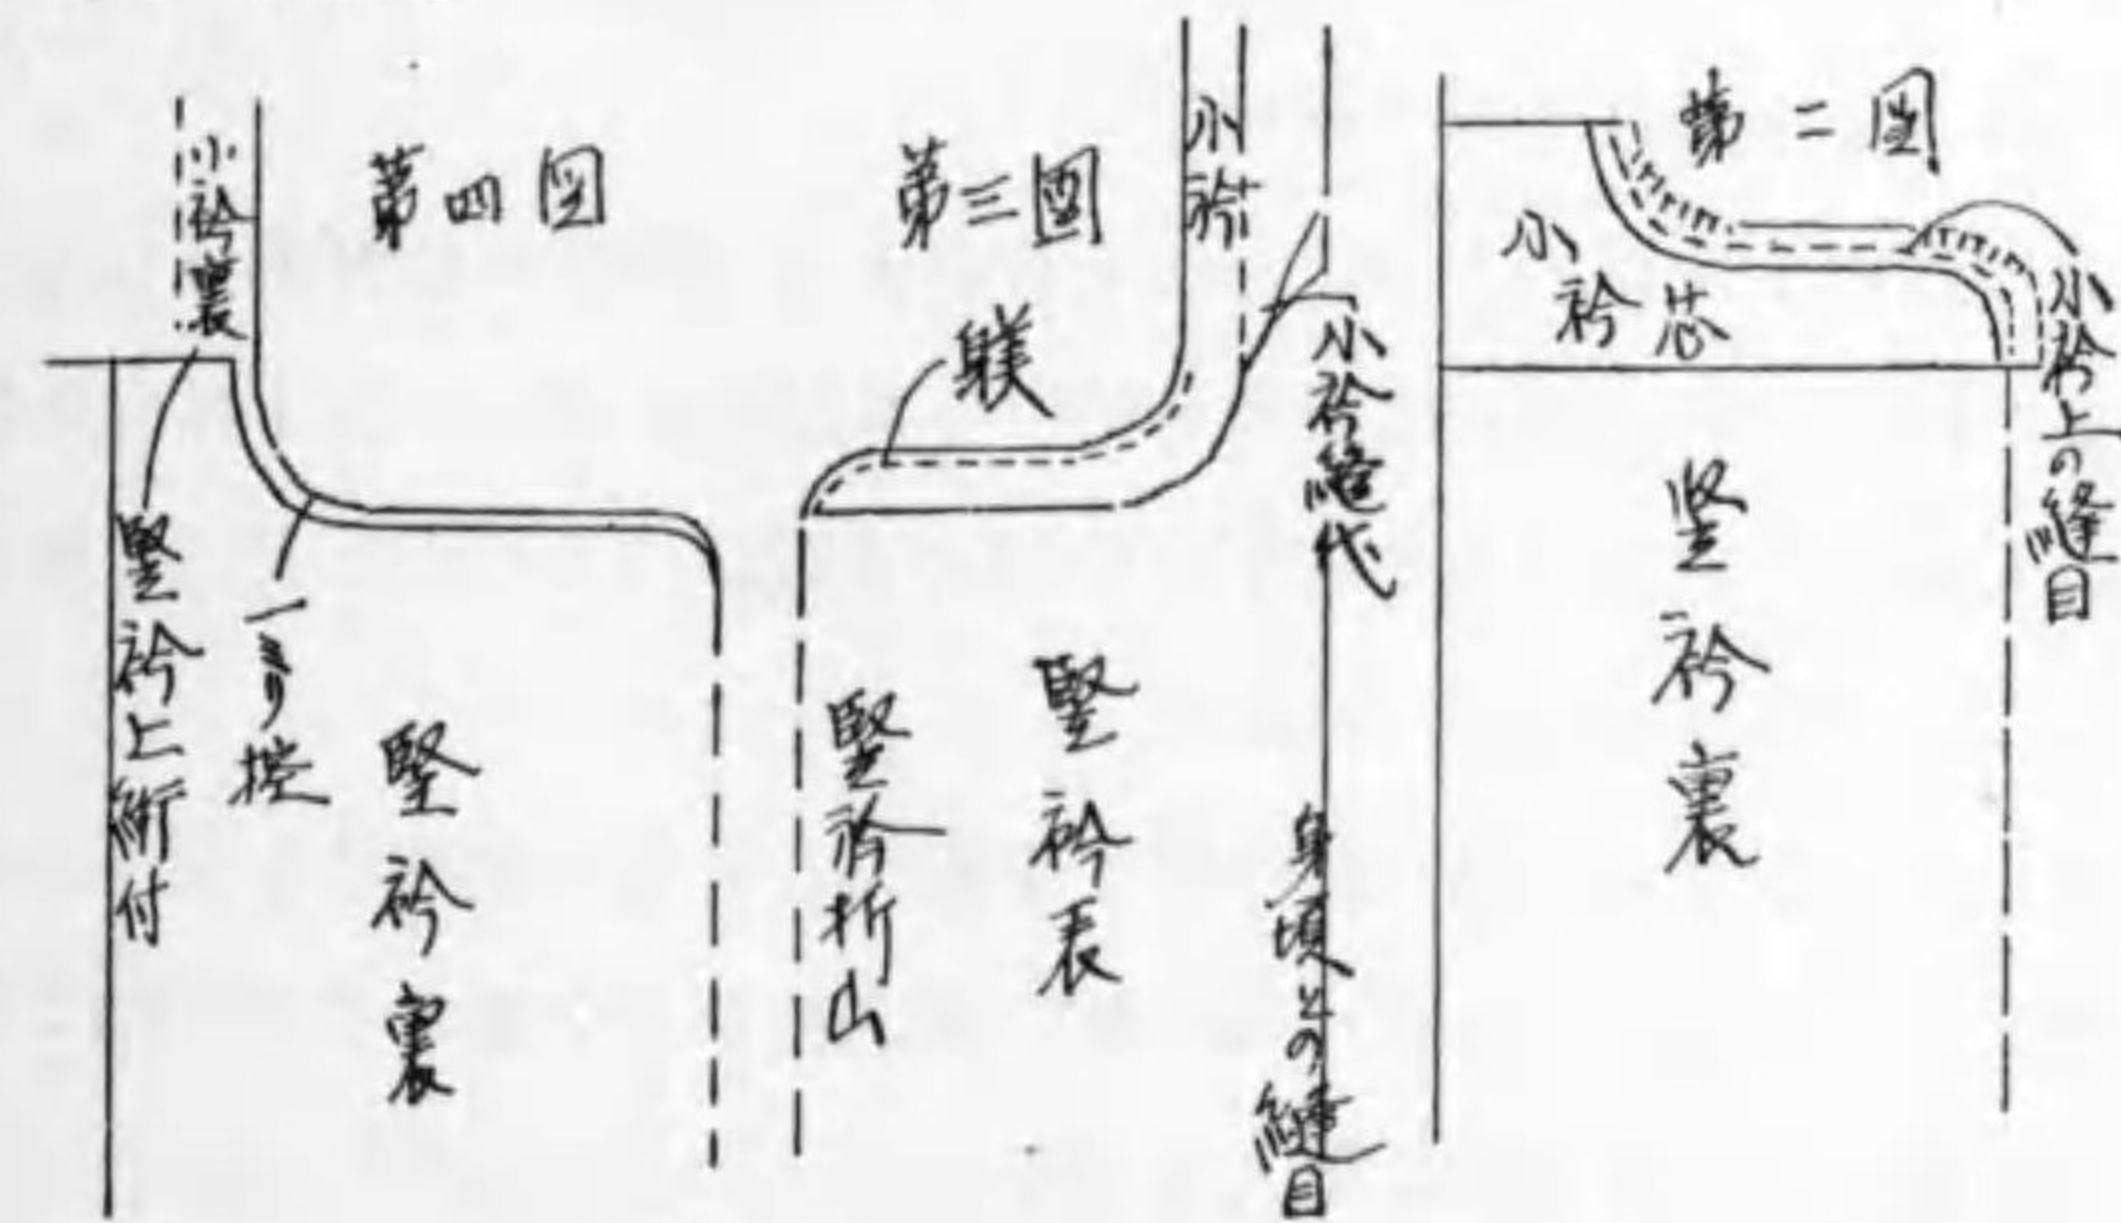 第二図
小衿芯
小衿上の縫目
竪衿裏
第三圖
小衿
躾
小衿縫代
竪衿表
竪衿折山
身頃との縫目
第四図
小衿裏
竪衿上絎付
一ミリ控
竪衿裏